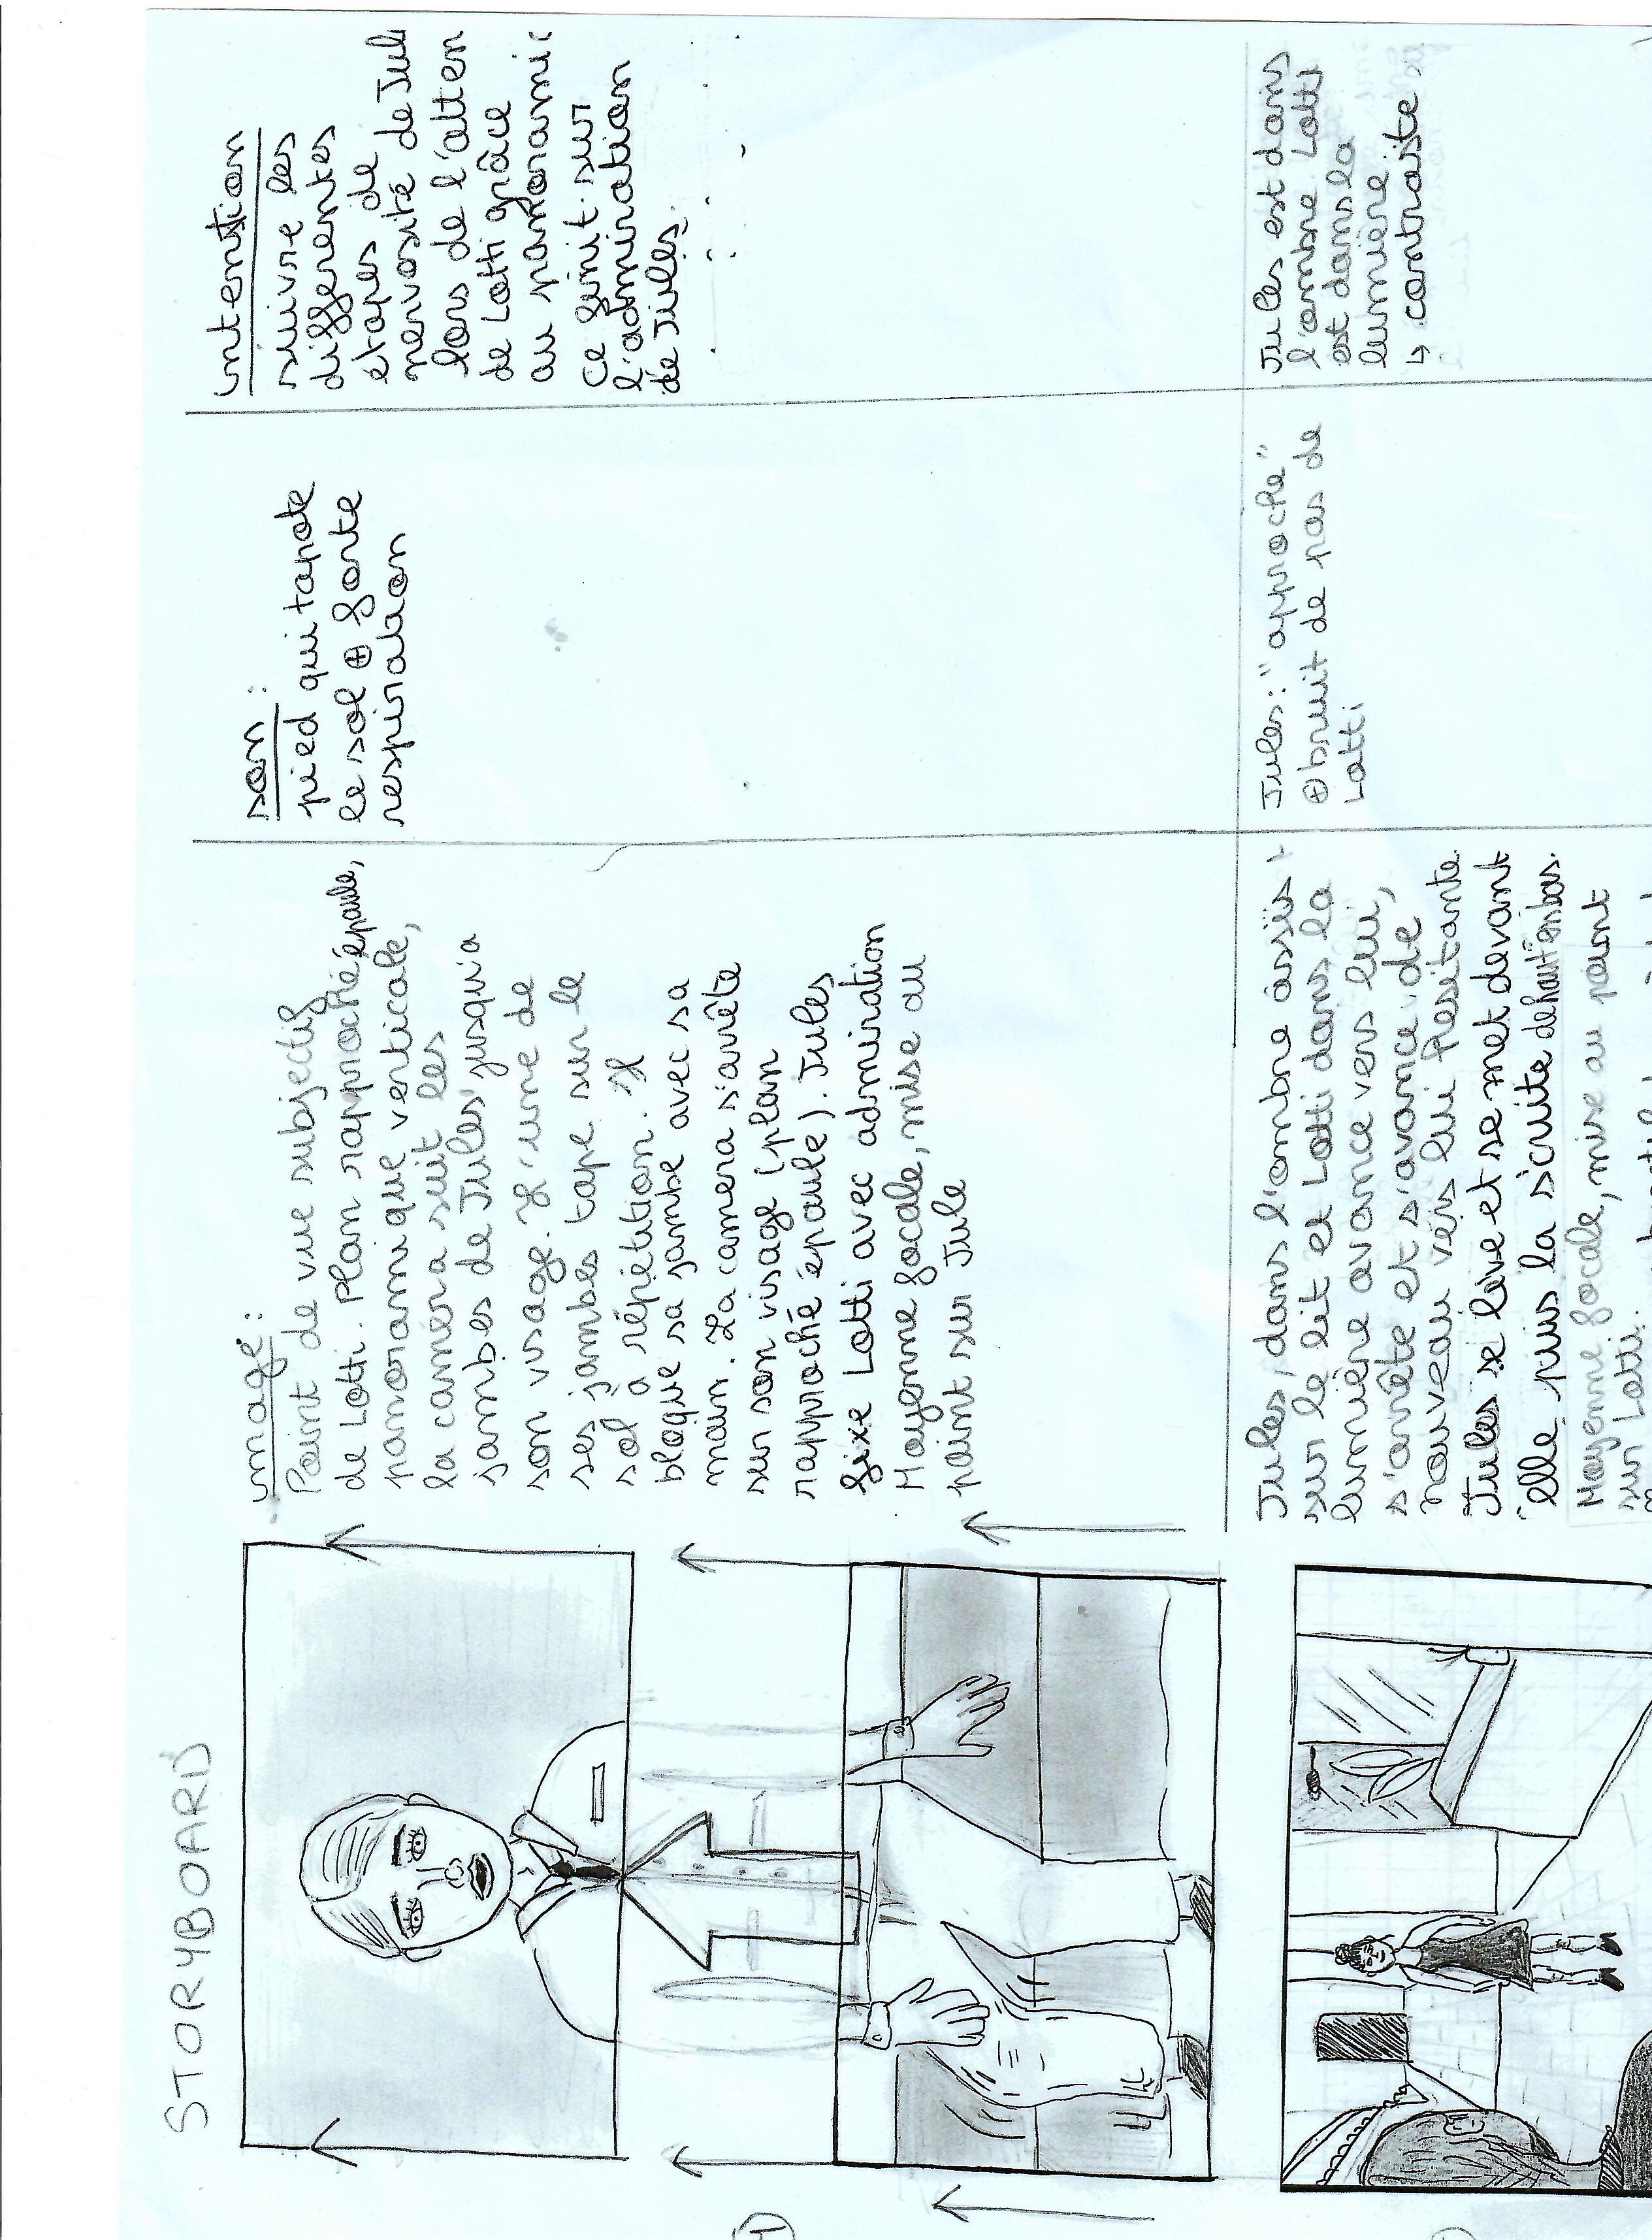 STORYBOARD
image :
Point de vue subjectif
de Lotti. Plan rapproché épaule,
panoramique verticale,
la caméra suit les
jambes de Jules jusqu'a
son visage. L'une de
ses jambes tape sur le
sol a répétition. Il
bloque sa jambe avec sa
main. La camera s'arrête
sur son visage (plan
rapproché épaule). Jules
fixe Lotti avec admiration
Moyenne focale, mise au
point sur Jule
son :
pied qui tapote
le sol ⊕ forte
respiration
intention
suivre les
differentes
étapes de
nervosité de Jul
lors de l'atten
de Lotti grâce
au panorami
Ce finit sur
l'admiration
de Jules.
1
Jules, dans l'ombre assis
sur le lit et Lotti dans la
lumière avance vers lui,
s'arrête et s'avance de
nouveau vers lui hésitante.
Jules se lève et se met devant
elle puis la scrute de haut en bas.
Moyenne focale, mise au point
sur Lotti.
Jules : "approche"
⊕ bruit de pas de
Lotti
Jules est dans
l'ombre. Lotti
est dans la
lumière.
↳ contraste.